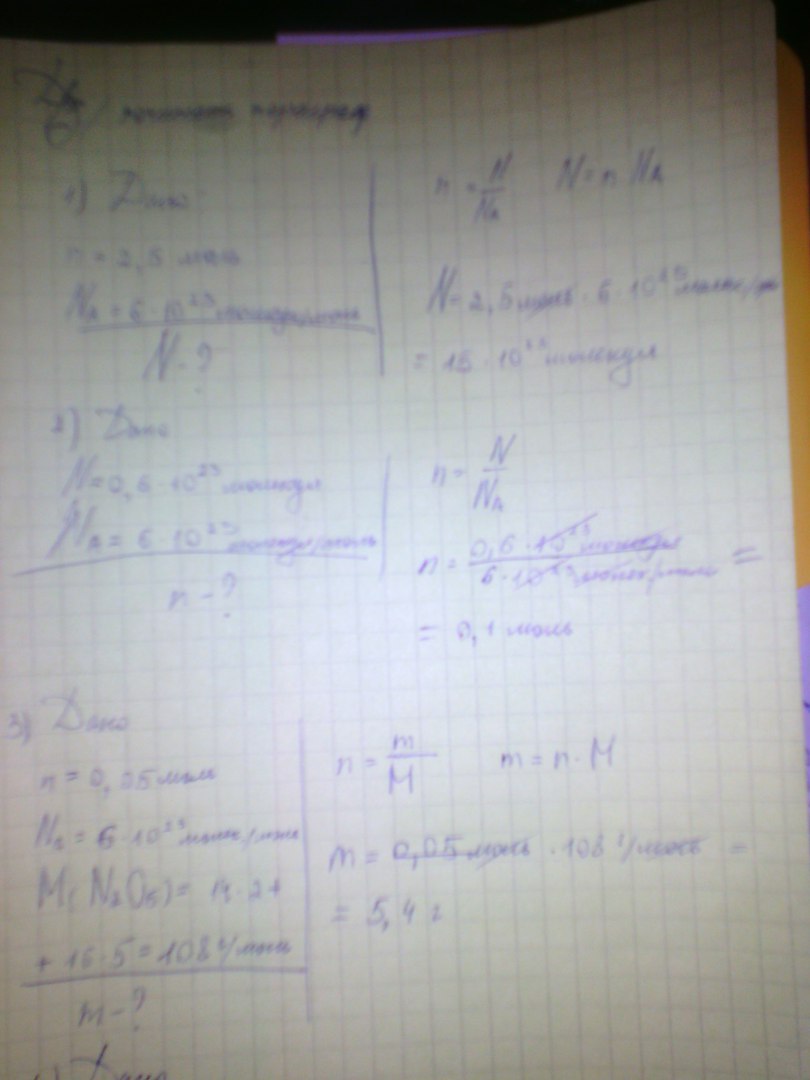 Д/з
1) Дано:
n = 2,5 моль
Nₐ = 6 · 10²³ молекул/моль
N - ?
n = N/Nₐ N = n · Nₐ
N = 2,5 моль · 6 · 10²³ молек/моль
= 15 · 10²³ молекул
2) Дано
N = 0,6 · 10²³ молекул
Nₐ = 6 · 10²³ молекул/моль
n - ?
n = N/Nₐ
n = 0,6 · 10²³ молекул / 6 · 10²³ молек/моль =
= 0,1 моль
3) Дано
n = 0,05 моль
Nₐ = 6 · 10²³ молек/моль
M(N₂O₅) = 14 · 2 +
+ 16 · 5 = 108 г/моль
m - ?
n = m/M m = n · M
m = 0,05 моль · 108 г/моль =
= 5,4 г
Дано